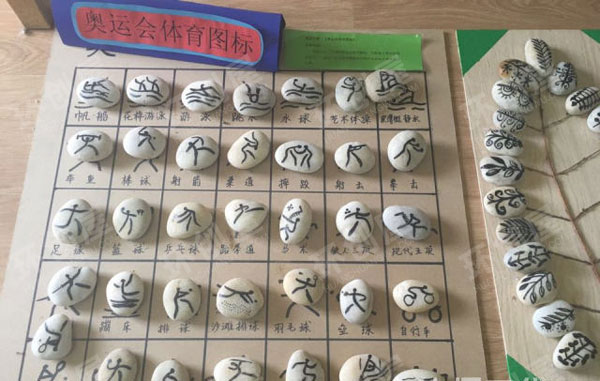 奥运会体育图标
帆船 花样游泳 游泳 跳水 水球 艺术体操 皮划艇静水
举重 棒球 射箭 柔道 摔跤 射击 拳击
足球 篮球 乒乓球 跆拳道 马术 铁人三项 现代五项
蹦床 排球 沙滩排球 羽毛球 垒球 自行车